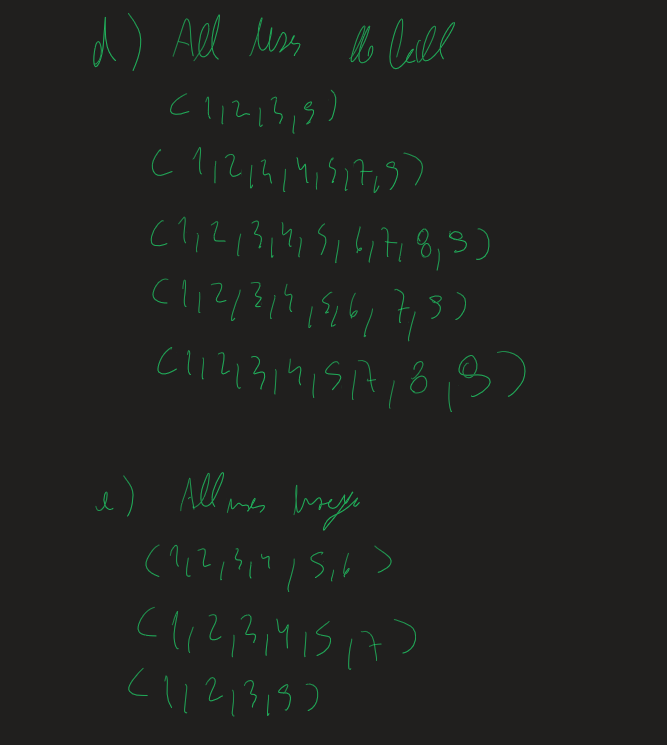 d) All Uses
(1,2,3,9)
(1,2,3,4,5,7,9)
(1,2,3,4,5,6,7,8,9)
(1,2,3,4,5,6,7,9)
(1,2,3,4,5,7,8,9)
e) All uses
(1,2,3,4,5,6)
(1,2,3,4,5,7)
(1,2,3,9)